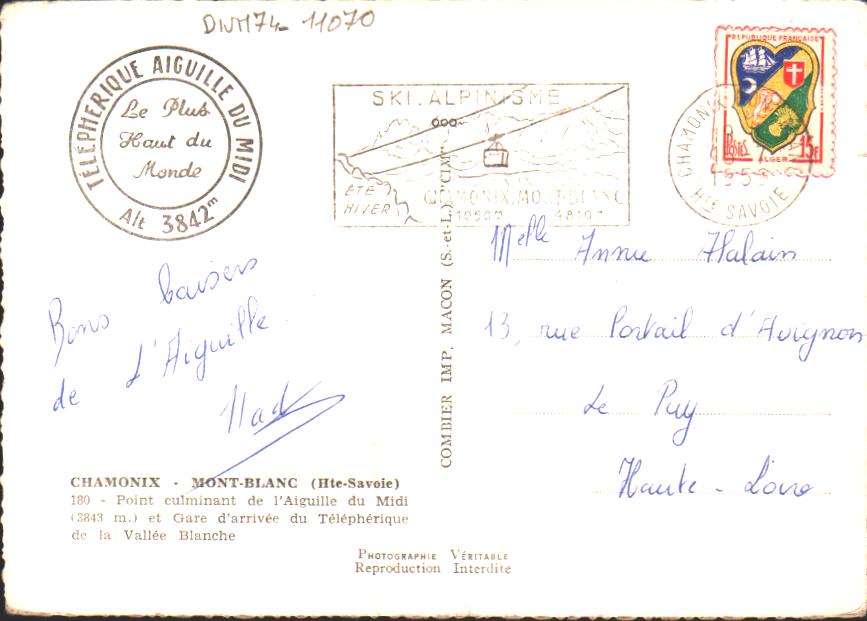 DIVM74- 11070
TÉLÉPHÉRIQUE AIGUILLE DU MIDI
Le Plus
Haut du
Monde
Alt 3842m
SKI. ALPINISME
ÉTÉ
HIVER
CHAMONIX. MONT-BLANC
1050m 4810m
CHAMONIX
HTE SAVOIE
REPUBLIQUE FRANÇAISE
POSTES
ALGER
15F
Bons baisers
de l'Aiguille
Nad
COMBIER IMP. MACON (S.-et-L.) "CIM"
Melle Annie Halain
13, rue Portail d'Avignon
Le Puy
Haute-Loire
CHAMONIX - MONT-BLANC (Hte-Savoie)
180 - Point culminant de l'Aiguille du Midi
(3843 m.) et Gare d'arrivée du Téléphérique
de la Vallée Blanche
PHOTOGRAPHIE VÉRITABLE
Reproduction Interdite